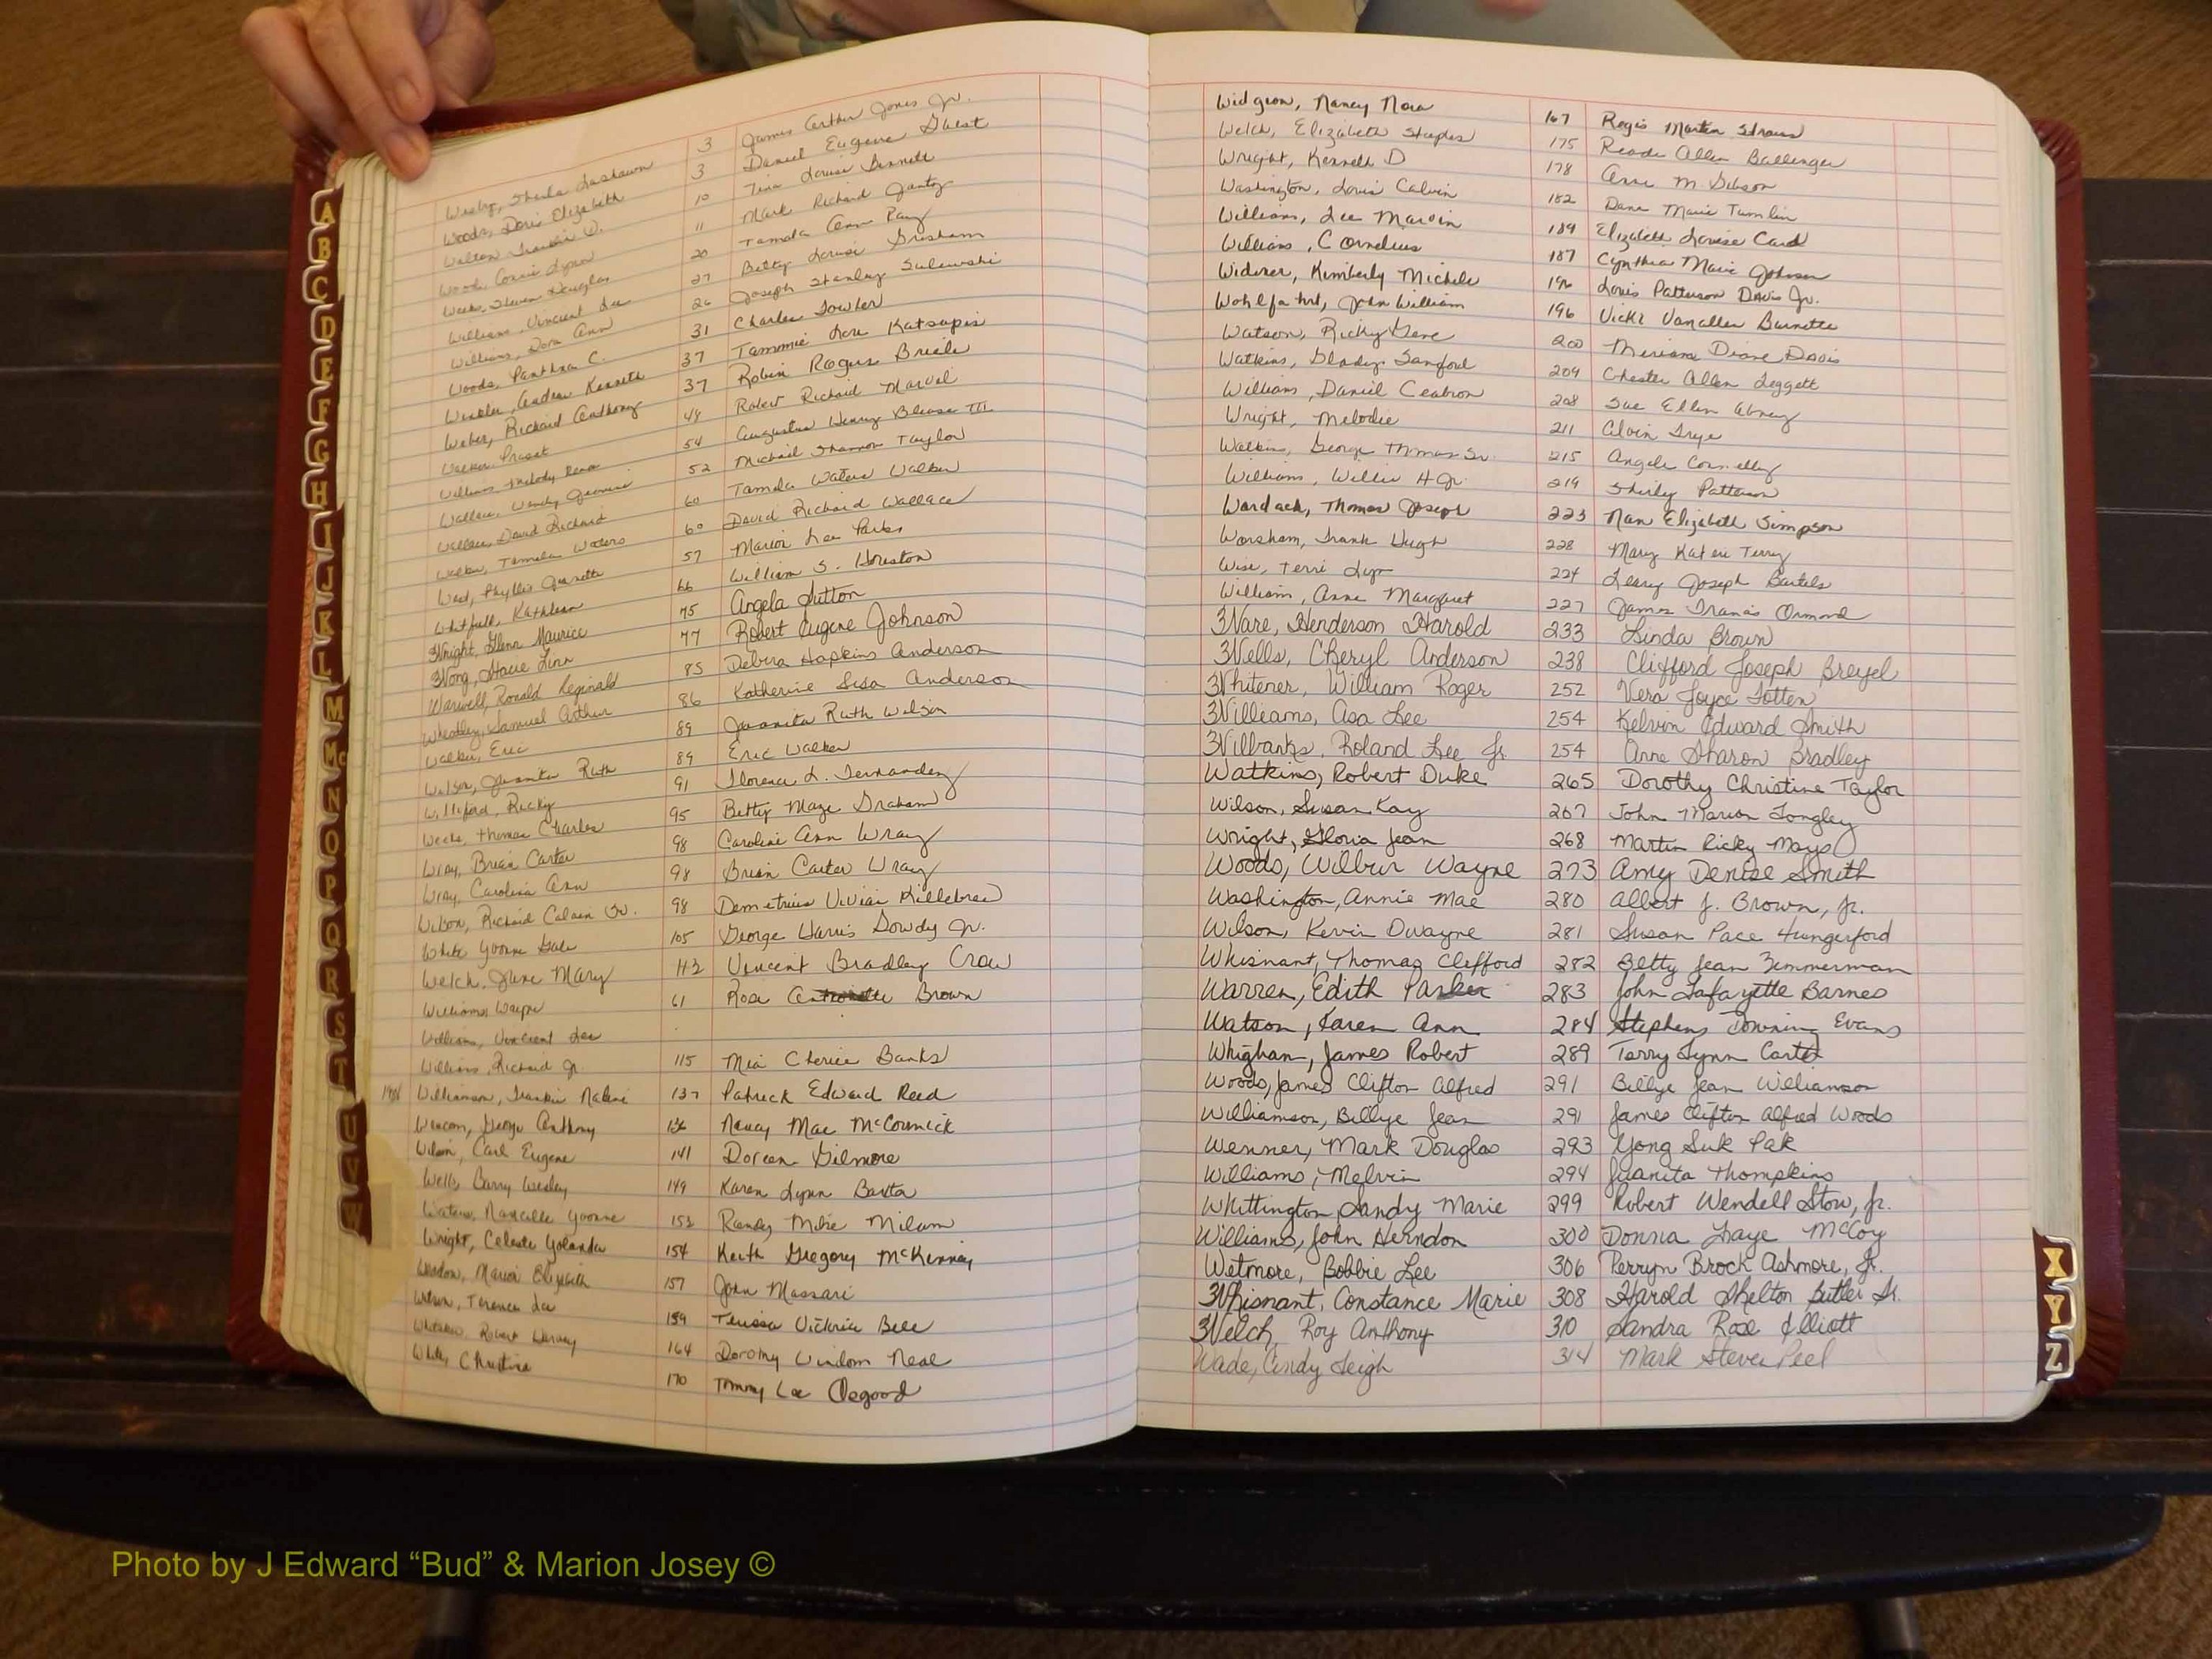 Wesby, Sheila Lashawn 3 James Arthur Jones Jr.
Woods, Doris Elizabeth 3 Daniel Eugene Guest
Walton Frankie D. 10 Tina Louise Bennett
Wood, Connie Lynn 11 Mark Richard Jantz
Weeks, Steven Douglas 20 Tamala Ann Ray
Williams, Vincent Lee 27 Betty Louise Grisham
Williams, Dora Ann 26 Joseph Stanley Sulewski
Woods, Panthea C. 31 Charles Fowler
Winkler, Andrew Kenneth 37 Tammie Lou Katsapis
Weber, Richard Anthony 37 Robin Rogers Briele
Walker 48 Robert Richard Marvel
Williams Melody Rena 54 Augustus Henry Blease III
Wallace, Wendy Jeannine 52 Michael Shannon Taylor
Wallace, David Richard 60 Tamela Waters Walker
Walker, Tamela Waters 60 David Richard Wallace
West, Phyllis Jeanette 57 Marion Lee Parks
Whitfield, Kathleen 66 William S. Houston
Wright, Glenn Maurice 75 Angela Sutton
Wong, Stacie Linn 77 Robert Eugene Johnson
Warwell, Ronald Reginald 85 Debera Hopkins Anderson
Wheatley, Samuel Arthur 86 Katherine Lisa Anderson
Walker, Eric 89 Juanita Ruth Wilson
Wilson, Juanita Ruth 89 Eric Walker
Williford, Ricky 91 Florence L. Fernandez
Weeks, Thomas Charles 95 Betty Maze Graham
Wray, Brian Carter 98 Caroline Ann Wray
Wray, Caroline Ann 98 Brian Carter Wray
Wilson, Richard Calvin Sr. 98 Demetrius Vivian Killebrew
White Yvonne Gale 105 George Harris Dowdy Jr.
Welch, June Mary 113 Vincent Bradley Crow
Williams, Wayne 61 Rose Brown
Williams, Vincent Lee
Williams, Richard Jr. 115 Mia Cherice Banks
Williamson, Frankie Nalene 137 Patrick Edward Reed
George Anthony 136 Nancy Mae McCormick
Wilson, Carl Eugene 141 Doreen Gilmore
Wells, Barry Wesley 149 Karen Lynn Baxta
Waters, Yvonne 152 Randy Mike Milam
Wright, Celeste Yolanda 154 Keith Gregory McKinney
Weedon, Marion Elizabeth 157 John Massari
Wilson, Terence Lee 159 Teressa Victoria Bell
Whitaker, Robert Harvey 164 Dorothy Windom Neal
White, Christina 170 Tommy Lee Osgood
Widgeon, Nancy Nora 167 Regis Martin Straus
Welch, Elizabeth Staples 175 Reade Allen Ballenger
Wright, Kenneth D 178 Anne M. Gibson
Washington, Louis Calvin 182 Dana Marie Tumlin
Williams, Lee Marvin 189 Elizabeth Louise Card
Williams, Cornelius 187 Cynthia Marie Johnson
Widener, Kimberly Michele 196 Louis Patterson Davis Jr.
Wohlfahrt, John William 196 Vicki Vanallen Burnette
Watson, Ricky Gene 200 Miriam Diane Davis
Watkins, Gladys Sanford 209 Chester Allen Leggett
Williams, Daniel Ceabron 208 Sue Ellen Abney
Wright, Melodie 211 Alvin Frye
Watkins, George Thomas Sr. 215 Angele Connelley
Williams, Willie H Jr. 219 Shirley Patterson
Wardack, Thomas Joseph 223 Nan Elizabeth Simpson
Worsham, Frank Hugh 228 Mary Katen Terry
Wise, Terri Lyn 224 Leary Joseph Bartels
William, Anne Margaret 227 James Francis Ormond
Ware, Henderson Harold 233 Linda Brown
Wells, Cheryl Anderson 238 Clifford Joseph Breyel
Whitener, William Roger 252 Vera Joyce Totten
Williams, Asa Lee 254 Kelvin Edward Smith
Wilbanks, Roland Lee Jr. 254 Anne Sharon Bradley
Watkins, Robert Duke 265 Dorothy Christine Taylor
Wilson, Susan Kay 267 John Marion Longley
Wright, Gloria Jean 268 Martin Ricky Mays
Woods, Wilbur Wayne 273 Amy Denise Smith
Washington, Annie Mae 280 Albert J. Brown, Jr.
Wilson, Kevin Dwayne 281 Susan Pace Hungerford
Whisnant, Thomas Clifford 282 Betty Jean Zimmerman
Warren, Edith Parker 283 John Lafayette Barnes
Watson, Karen Ann 284 Stephens Downing Evans
Whighan, James Robert 289 Terry Lynn Carter
Woods, James Clifton Alfred 291 Billye Jean Williamson
Williamson, Billye Jean 291 James Clifton Alfred Woods
Wenner, Mark Douglas 293 Yong Suk Pak
Williams, Melvin 294 Juanita Thompkins
Whittington, Sandy Marie 299 Robert Wendell Stow, Jr.
Williams, John Herndon 300 Donna Faye McCoy
Wetmore, Bobbie Lee 306 Perryn Brock Ashmore, Jr.
Whisnant, Constance Marie 308 Harold Shelton Butler Sr.
Welch, Roy Anthony 310 Sandra Rose Elliott
Wade, Cindy Leigh 314 Mark Steven Peel
A
B
C
D
E
F
G
H
I
J
K
L
M
Mc
N
O
P
Q
R
S
T
U
V
W
X
Y
Z
Photo by J Edward “Bud” & Marion Josey ©